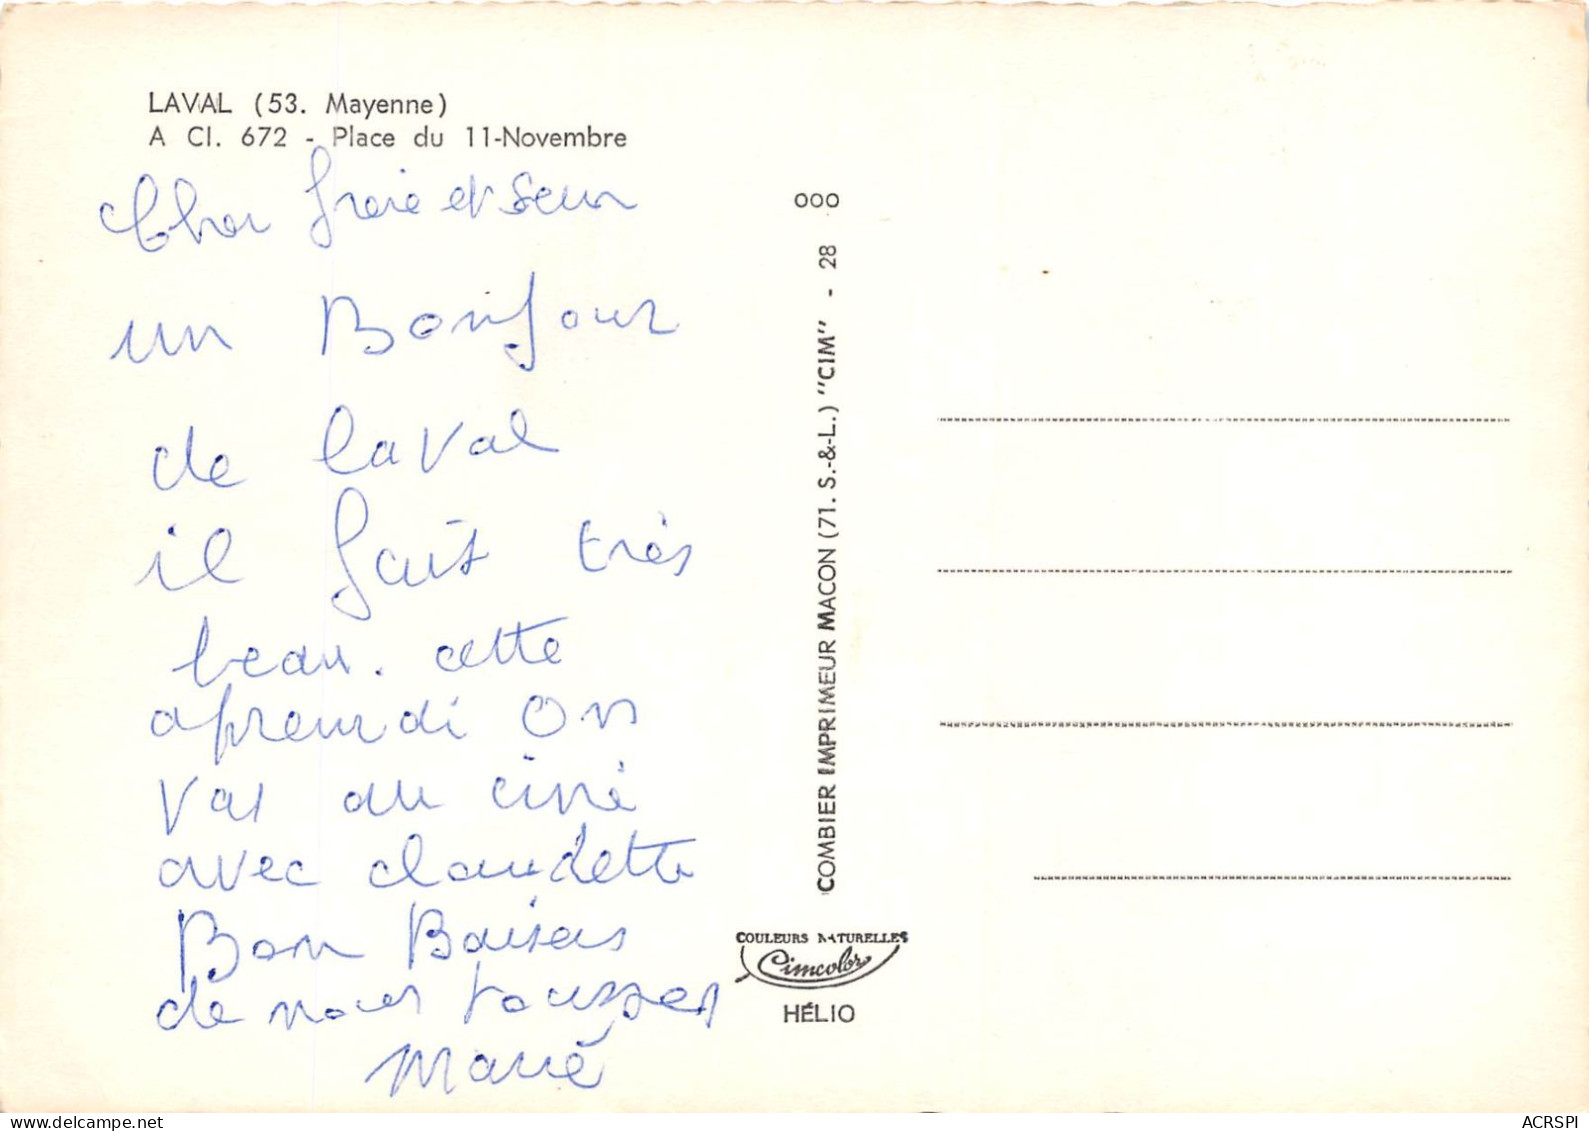 LAVAL (53. Mayenne)
A Cl. 672 - Place du 11-Novembre
Cher frere et Seur
un Bonjour
de laval
il fait très
beau. cette
apremdi On
vas au ciné
avec claudette
Bon Baisers
de nous tousses
Marie
000
COMBIER IMPRIMEUR MACON (71. S.-&-L.) "CIM" - 28
COULEURS NATURELLES
Cimcolor
HÉLIO
ACRSPI